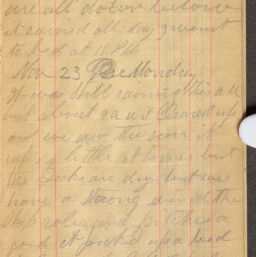 are all down below
it rained all day I went
to bed at 11 PM
Nov 23 Monday
It was still raining this a m
but about 9 a m it cleared up
and we saw the sun it
a little at times but
the Decks are dry but we
have a strong wind the
Ship rolls and pitches a
good it picked up a bad